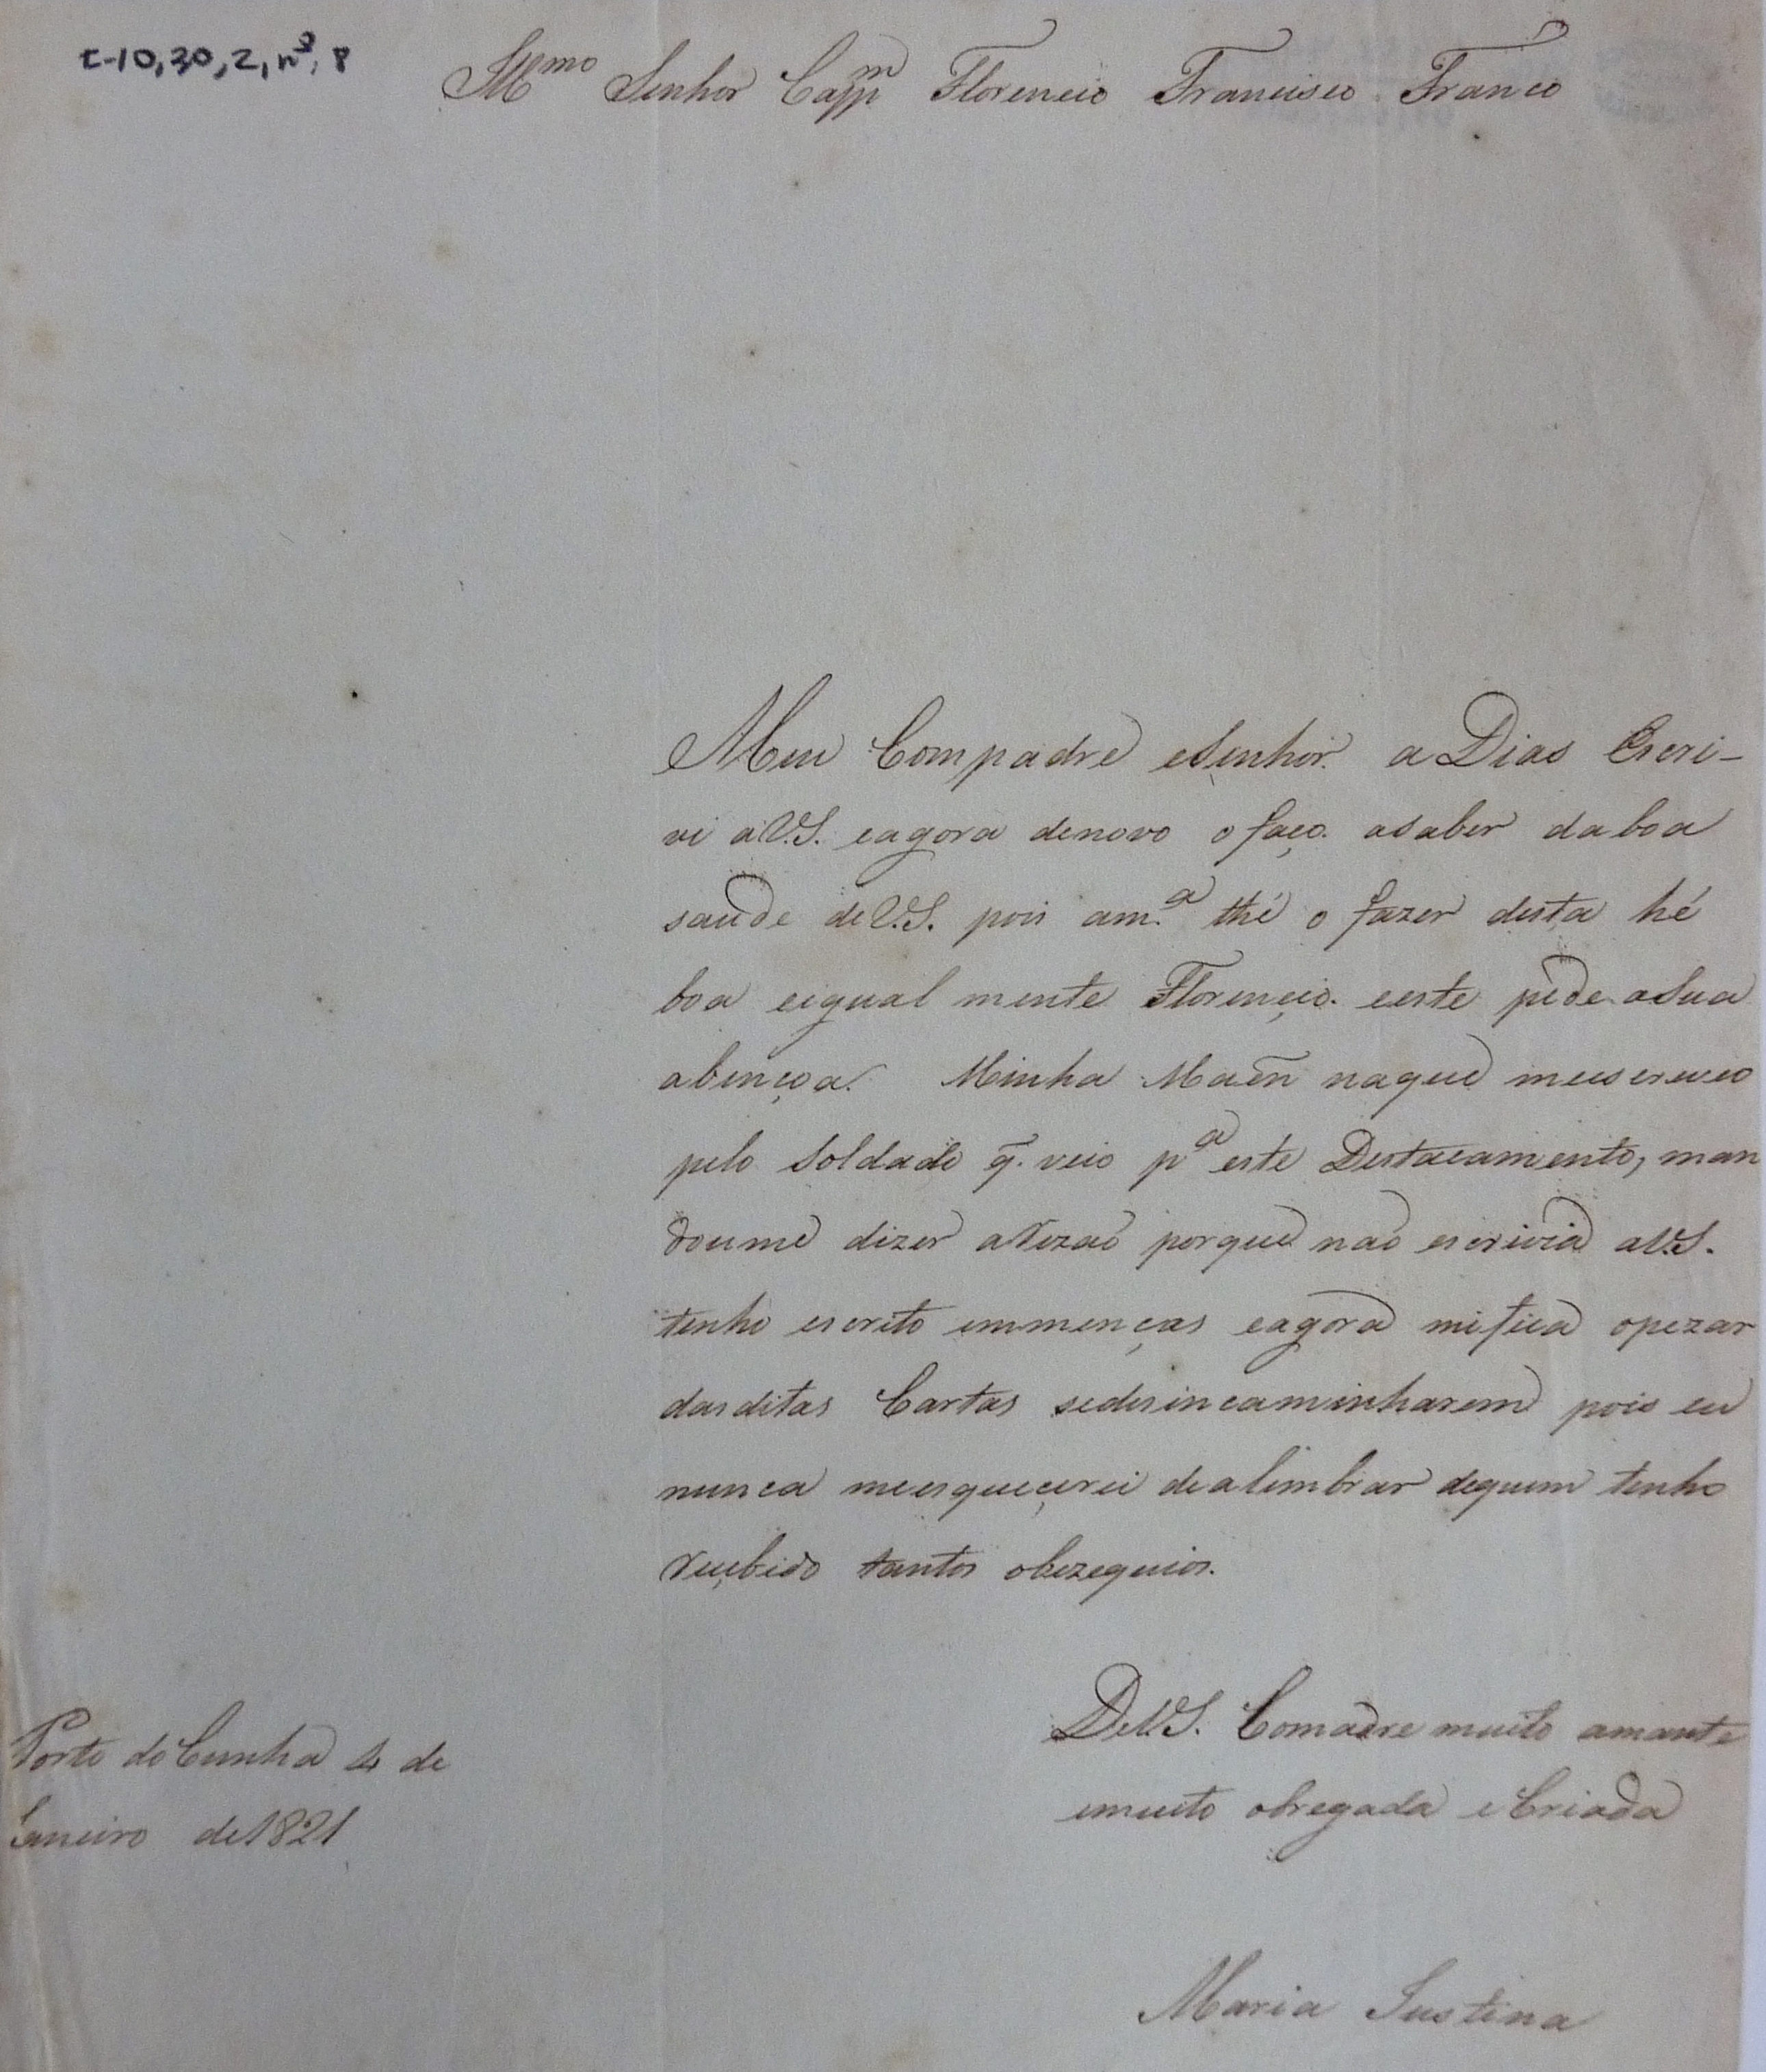 C-10,30,2, nº 8
Illmo Senhor Capm Florencio Francisco Franco
Meu Compadre eSenhor. a Dias Escri-
vi aV.S. eagora denovo o faço. asaber da boa
saude deV.S. pois am.a thé o fazer desta hé
boa eigual mente Florençio. eeste pede aSua
abençoa. Minha Maen naque meescreveo
pelo Soldado q. veio pa este Destacamento, man
doume dizer aRezaó porque naó escrivia aV.S.
tenho escrito immenças eagora mifica opezar
dasditas Cartas sedesincaminharem pois eu
nunca meesqueçerei dealembrar dequem tenho
Reçebido tantos obzequios.
DeV.S. Comadre muito amante
emuito obregada eCriada
Porto do Cunha 4 de
Janeiro de1821
Maria Justina